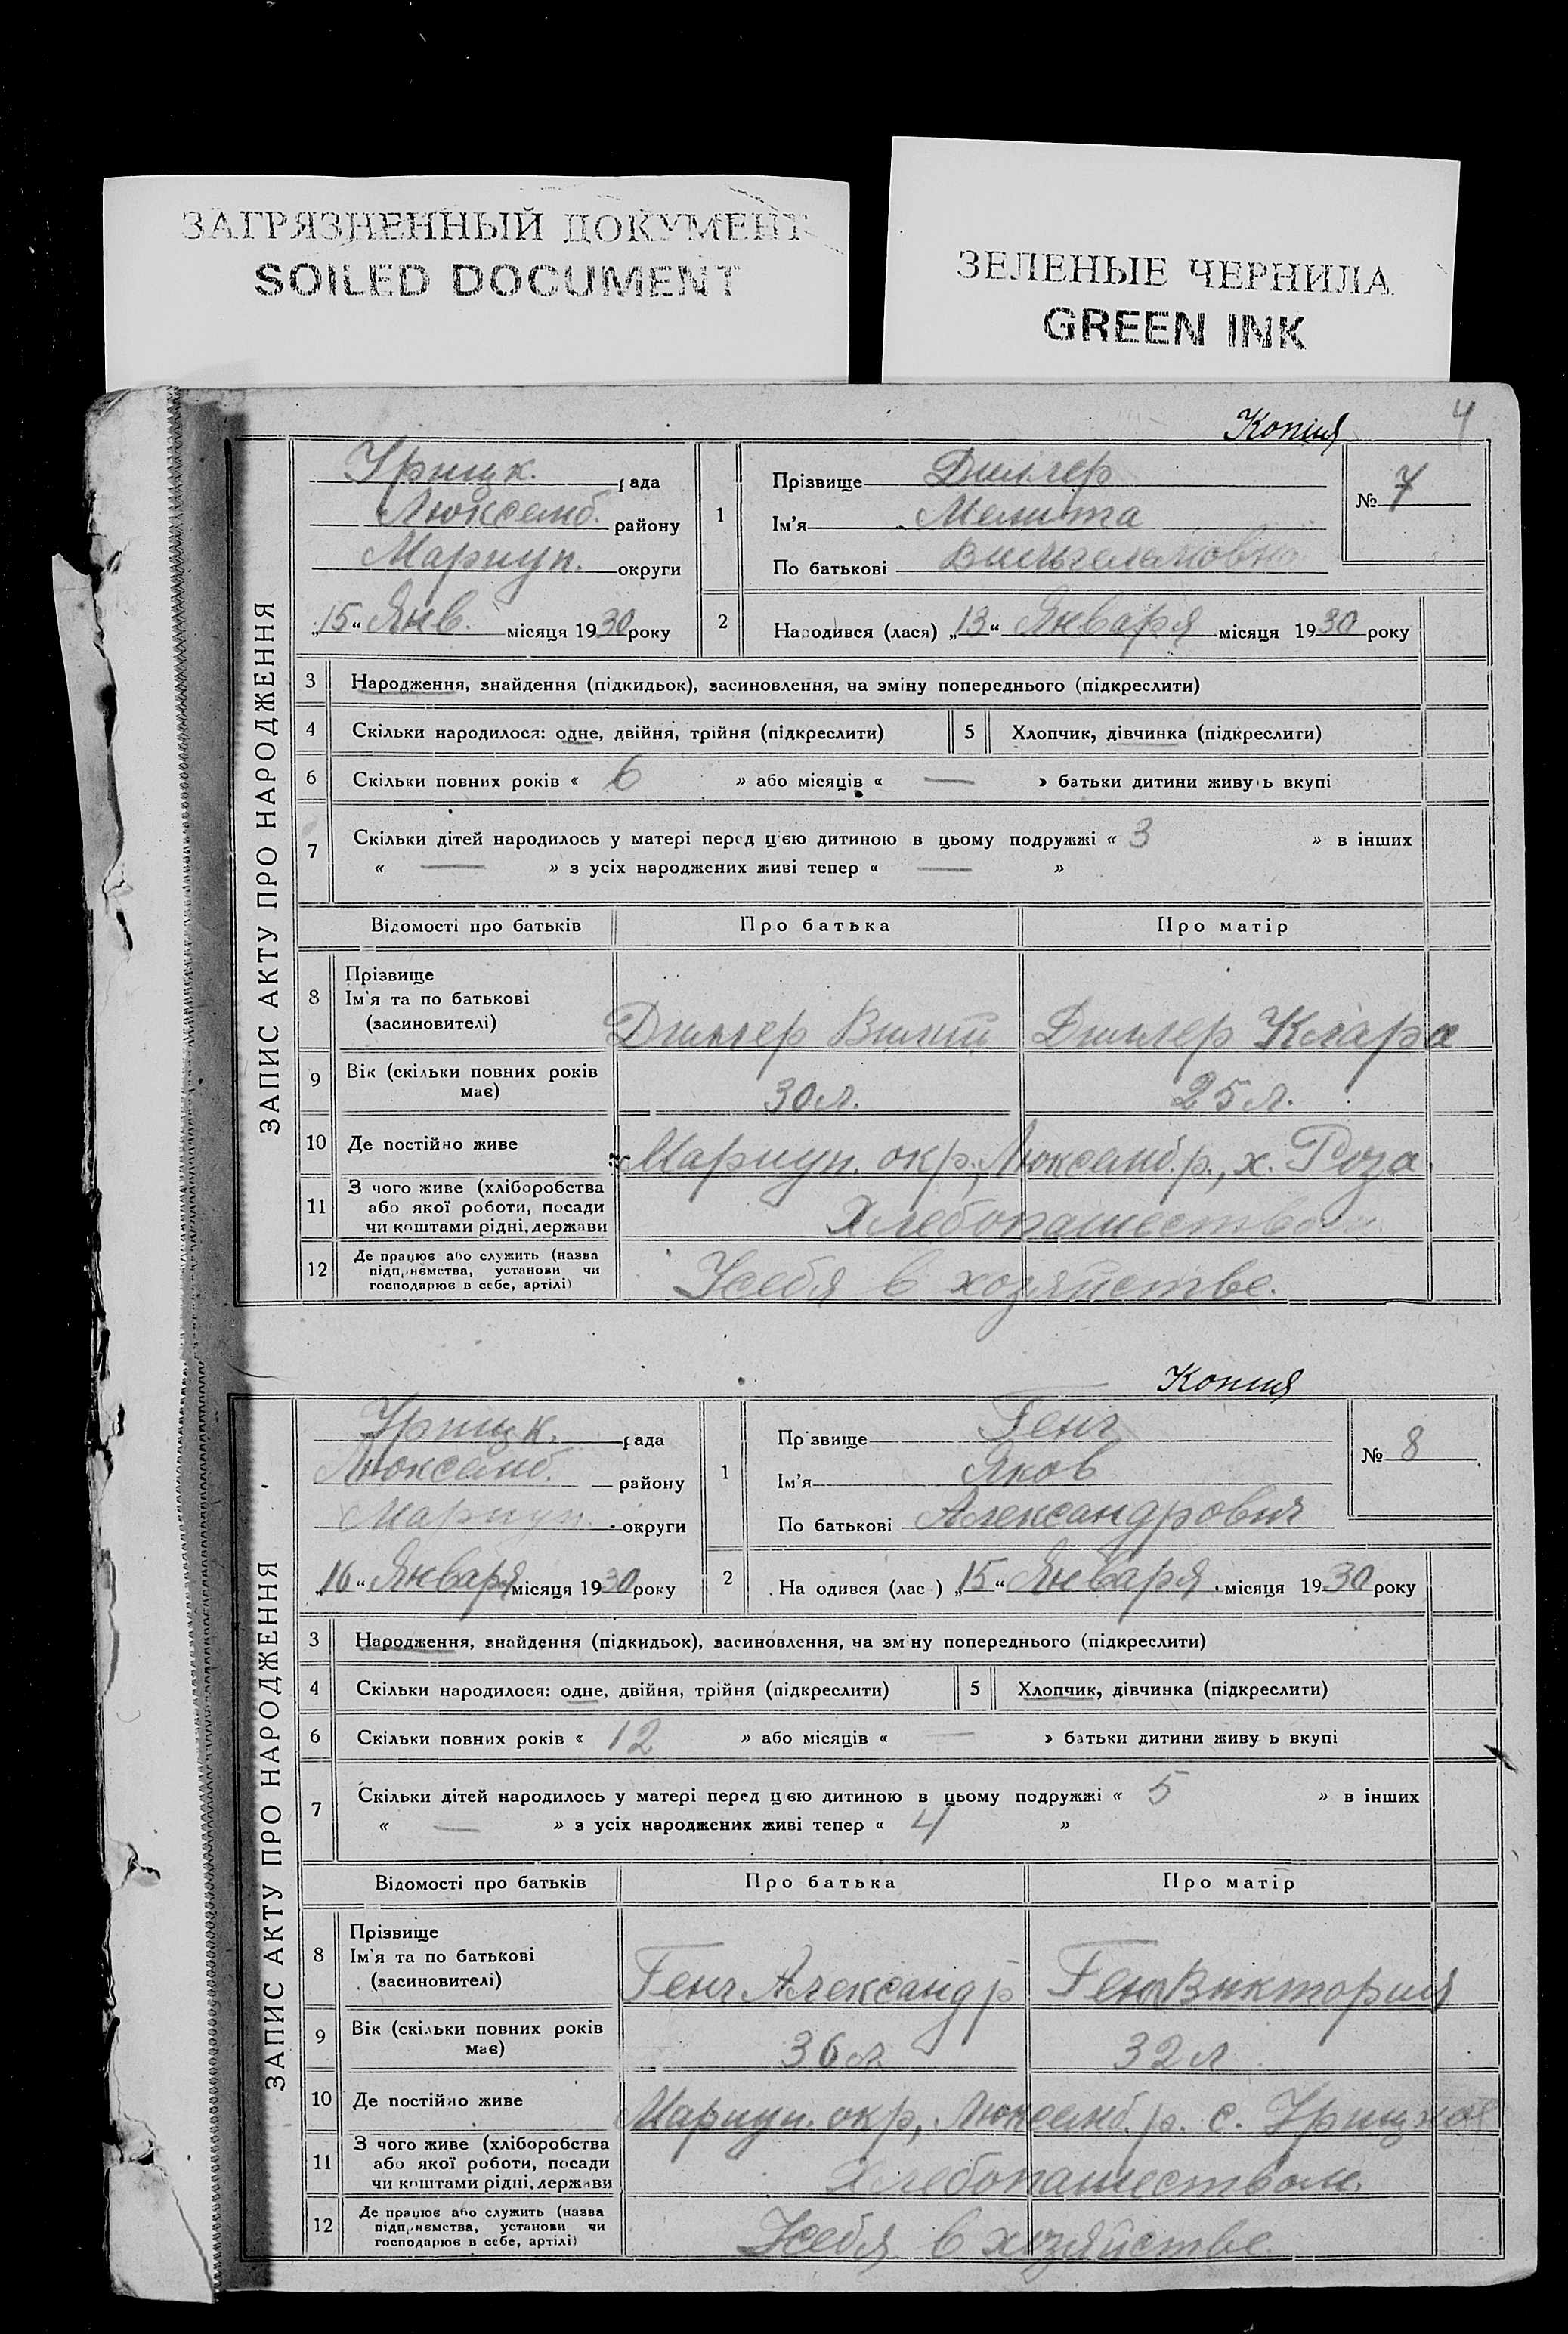 ЗАГРЯЗНЕННЫЙ ДОКУМЕНТ
SOILED DOCUMENT
ЗЕЛЕНЫЕ ЧЕРНИЛА
GREEN INK
4
Копия
ЗАПИС АКТУ ПРО НАРОДЖЕННЯ
Урицк. рада
Люксемб. району
Мариуп. округи
„15“ Янв. місяця 1930 року
1
Прізвище Диллер
Ім'я Мелита
По батькові Вильгельмовна
№ 7
2 Народився (лася) „13“ Января місяця 1930 року
3 Народження, знайдення (підкидьок), засиновлення, на зміну попереднього (підкреслити)
4 Скільки народилося: одне, двійня, трійня (підкреслити) 5 Хлопчик, дівчинка (підкреслити)
6 Скільки повних років « 6 » або місяців « — » батьки дитини живуть вкупі
7 Скільки дітей народилось у матері перед цією дитиною в цьому подружжі « 3 » в інших
« — » з усіх народжених живі тепер « — »
Відомості про батьків Про батька Про матір
8 Прізвище
Ім'я та по батькові
(засиновителі)
Диллер Вильг Диллер Клара
9 Вік (скільки повних років
має)
30 л. 25 л.
10 Де постійно живе Мариуп. окр., Люксемб. р., х. Роза
11 З чого живе (хліборобства
або якої роботи, посади
чи коштами рідні, держави
Хлебопашеством
12 Де працює або служить (назва
підприємства, установи чи
господарює в себе, артілі)
У себя в хозяйстве.
Копия
ЗАПИС АКТУ ПРО НАРОДЖЕННЯ
Урицк. рада
Люксемб. району
Мариуп. округи
„16“ Января місяця 1930 року
1
Прізвище Генг
Ім'я Яков
По батькові Александрович
№ 8
2 На одився (лас ) „15“ Января місяця 1930 року
3 Народження, знайдення (підкидьок), засиновлення, на зміну попереднього (підкреслити)
4 Скільки народилося: одне, двійня, трійня (підкреслити) 5 Хлопчик, дівчинка (підкреслити)
6 Скільки повних років « 12 » або місяців « — » батьки дитини живу ь вкупі
7 Скільки дітей народилось у матері перед цією дитиною в цьому подружжі « 5 » в інших
« — » з усіх народжених живі тепер « 4 »
Відомості про батьків Про батька Про матір
8 Прізвище
Ім'я та по батькові
(засиновителі)
Генг Александр Генг Виктория
9 Вік (скільки повних років
має)
36 л. 32 л
10 Де постійно живе Мариуп. окр., Люксемб. р. с. Урицкое
11 З чого живе (хліборобства
або якої роботи, посади
чи коштами рідні, держави
Хлебопашеством.
12 Де працює або служить (назва
підприємства, установи чи
господарює в себе, артілі)
У себя в хозяйстве.